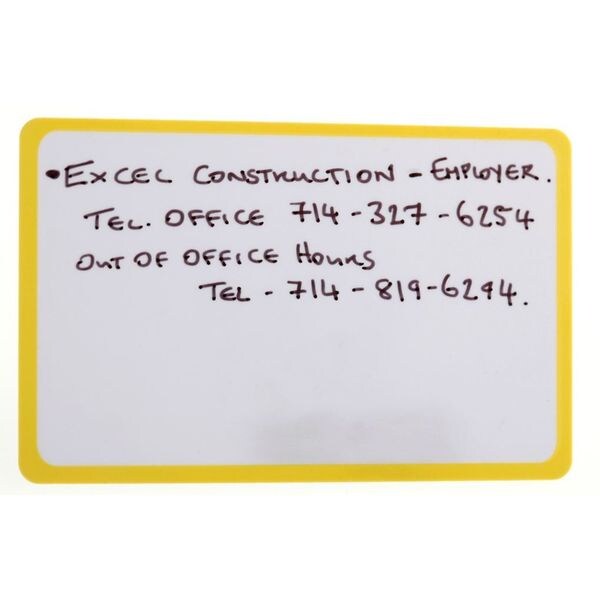 • EXCEL CONSTRUCTION - EMPLOYER.
TEL. OFFICE 714-327-6254
OUT OF OFFICE HOURS
TEL - 714-819-6294.